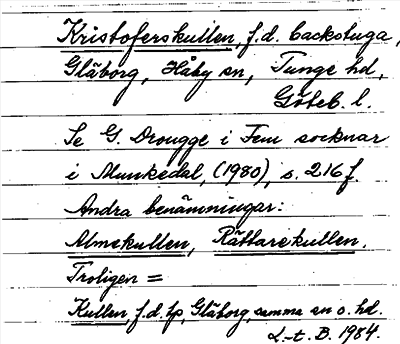 Kristoferskullen, f.d. backstuga,
Glåborg, Håby sn, Tunge hd,
Göteb. l.
Se G. Drougge i Fem socknar
i Munkedal, (1980), s. 216 f.
Andra benämningar:
Almekullen, Rättarekullen.
Troligen =
Kullen, f.d. tp, Glåborg, samma sn o. hd.
L-t. B. 1984.